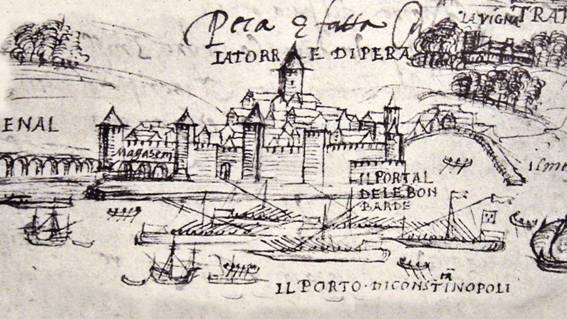 Pera è fatta
LAVIGNA TRA
LATORR E DI PERA
ENAL
Magasen
IL PORTAL
DELE BON
BARDE
IL PORTO · DI CONSTA̅TINOPOLI